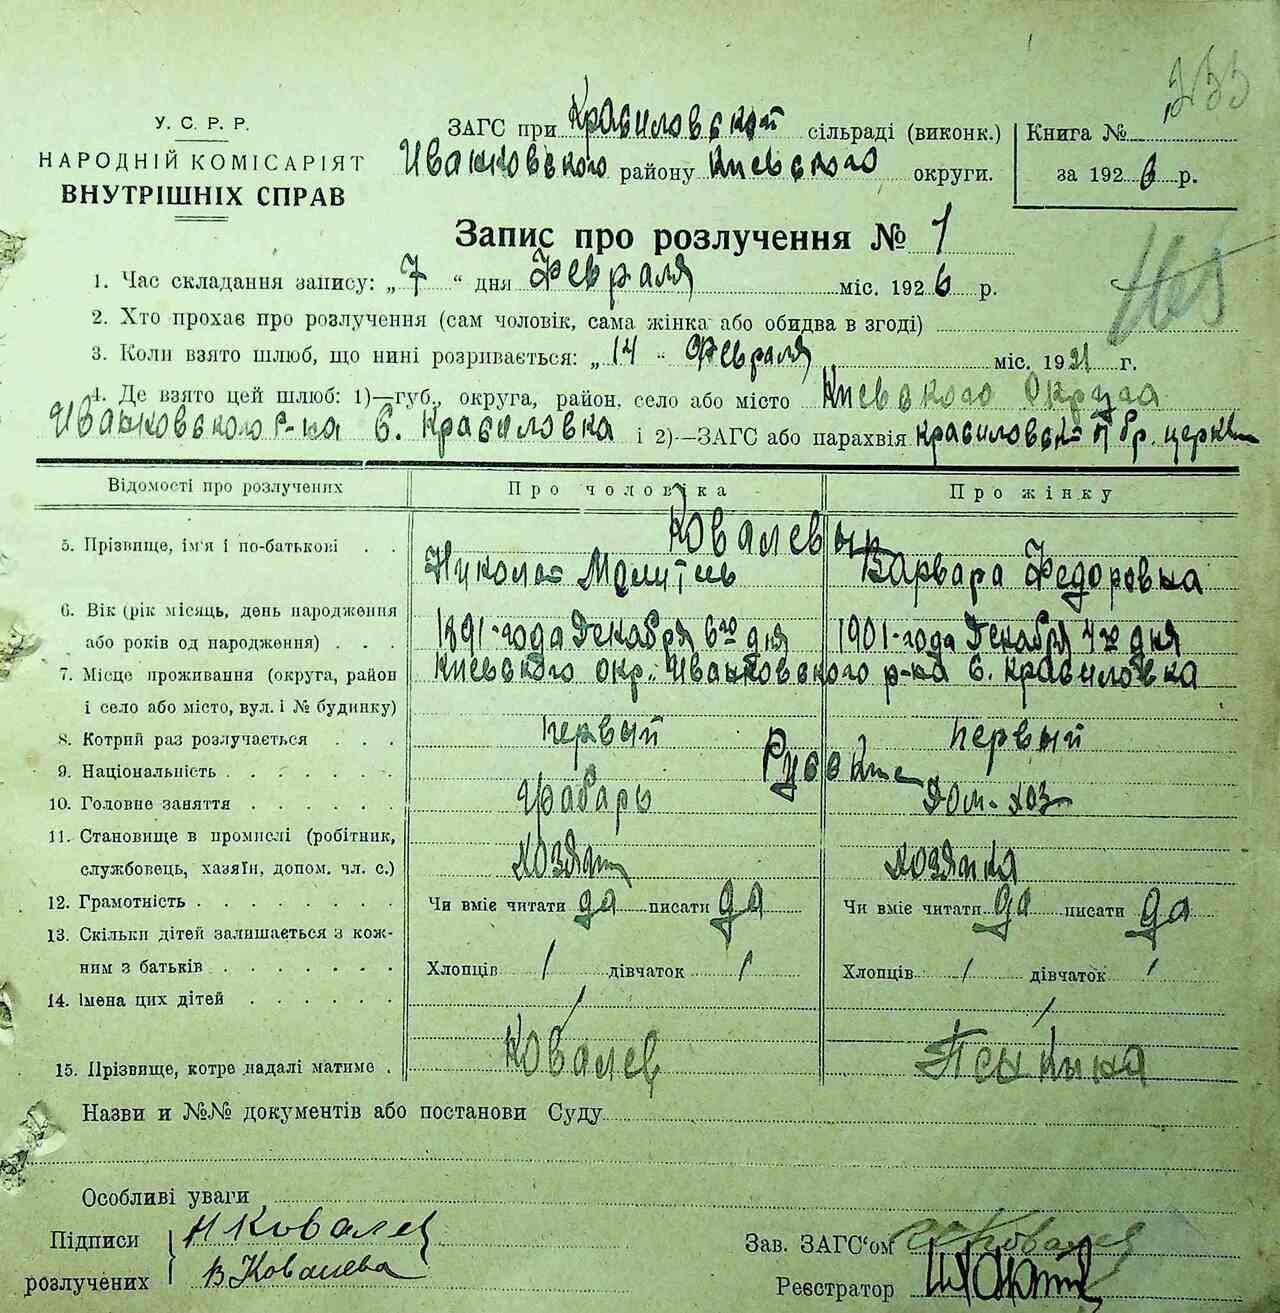 233
У. С. Р. Р.
НАРОДНІЙ КОМІСАРІЯТ
ВНУТРІШНІХ СПРАВ
ЗАГС при Красиловской сільраді (виконк.)
Иванковского району Киевского округи.
Книга №
за 1926 р.
Запис про розлучення № 1
1. Час складання запису: „7“ дня Февраля міс. 1926 р.
2. Хто прохає про розлучення (сам чоловік, сама жінка або обидва в згоді)
3. Коли взято шлюб, що нині розривається: „14“ Февраля міс. 1921 г.
4. Де взято цей шлюб: 1)—губ., округа, район, село або місто Киевского Округа
Иванковского р-на С. Красиловка і 2)—ЗАГС або парахвія Красиловской Пбр. церкви
Відомості про розлучених Про чоловіка Про жінку
Ковалевы
5. Прізвище, ім'я і по-батькові . . Николай Варвара Федоровна
6. Вік (рік місяць, день народження
або років од народження) . . . 1891-года Декабря 6го дня 1901-года Декабря 4го дня
7. Місце проживання (округа, район Киевского окр. Иванковского р-на С. Красиловка
і село або місто, вул. і № будинку)
8. Котрий раз розлучається . . . первый первый
9. Національність . . . . . . Русские
10. Головне заняття . . . . . . дом-хоз
11. Становище в промислі (робітник,
службовець, хазяїн, допом. чл. с.) хозяин хозяйка
12. Грамотність . . . . . . . . Чи вміє читати да писати да Чи вміє читати да писати да
13. Скільки дітей залишається з кож-
ним з батьків . . . . . . . Хлопців / дівчаток / Хлопців / дівчаток /
14. Імена цих дітей . . . . . . / /
15. Прізвище, котре надалі матиме . Ковалев
Назви и №№ документів або постанови Суду
Особливі уваги
Підписи Н Ковалев
розлучених В Ковалева
Зав. ЗАГС'ом Ковалев
Реєстратор